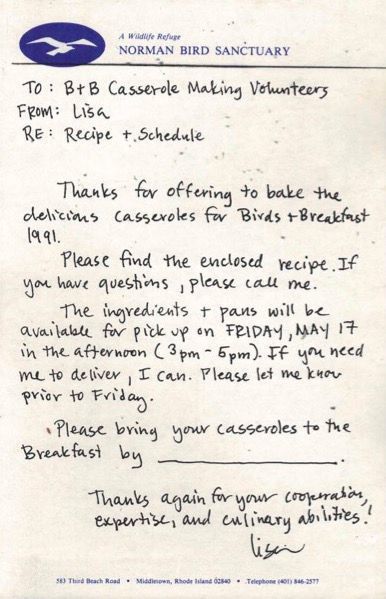 A Wildlife Refuge
NORMAN BIRD SANCTUARY
TO: B+B Casserole Making Volunteers
FROM: Lisa
RE: Recipe + Schedule
Thanks for offering to bake the
delicious casseroles for Birds + Breakfast
1991.
Please find the enclosed recipe. If
you have questions, please call me.
The ingredients + pans will be
available for pick up on FRIDAY, MAY 17
in the afternoon (3pm - 5pm). If you need
me to deliver, I can. Please let me know
prior to Friday.
Please bring your casseroles to the
Breakfast by ______________.
Thanks again for your cooperation,
expertise, and culinary abilities!
Lisa
583 Third Beach Road • Middletown, Rhode Island 02840 • Telephone (401) 846-2577